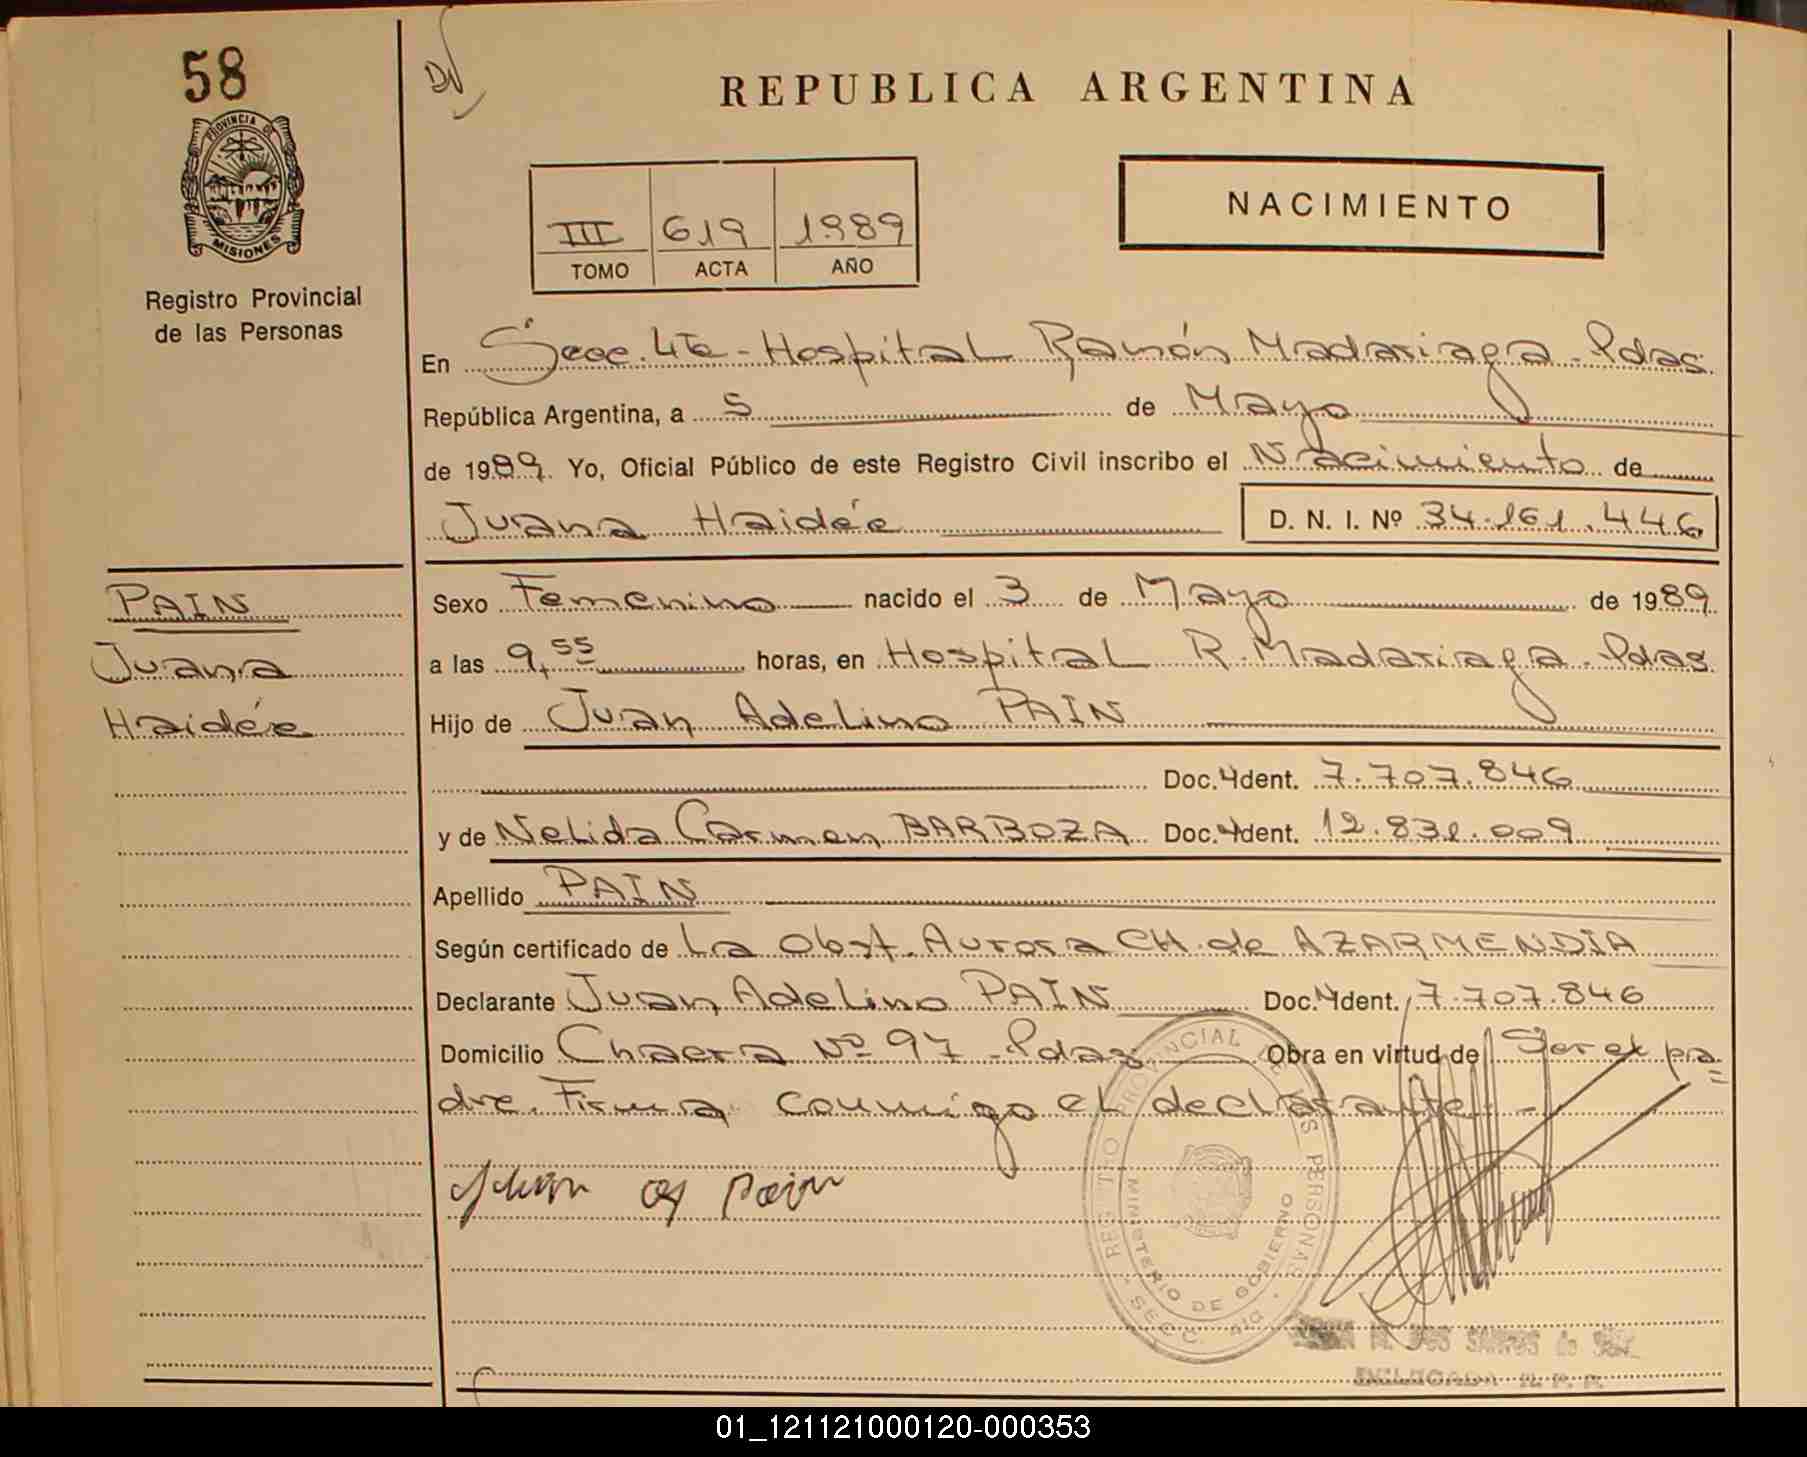 58
REPUBLICA ARGENTINA
PROVINCIA DE
MISIONES
Registro Provincial
de las Personas
III 619 1989
TOMO ACTA AÑO
NACIMIENTO
En Secc. 4ta - Hospital Ramón Madariaga - Pdas
República Argentina, a 5 de Mayo
de 1989. Yo, Oficial Público de este Registro Civil inscribo el Nacimiento de
Juana Haidée D. N. I. Nº 34.161.446
PAIN
Juana
Haidée
Sexo Femenino nacido el 3 de Mayo de 1989
a las 9,55 horas, en Hospital R. Madariaga - Pdas
Hijo de Juan Adelino PAIN
Doc. Ident. 7.707.846
y de Nelida Carmen BARBOZA Doc. Ident. 12.831.009
Apellido PAIN
Según certificado de La Obst. Aurora CH. de AZARMENDIA
Declarante Juan Adelino PAIN Doc. Ident. 7.707.846
Domicilio Chacra Nº 97 - Pdas Obra en virtud de Ser el pa=
dre. Firma conmigo el declarante -
REGISTRO PROVINCIAL DE LAS PERSONAS
MINISTERIO DE GOBIERNO
SECC. 4ta
DOS SANTOS de
DELEGADA R. P. P.
01_121121000120-000353